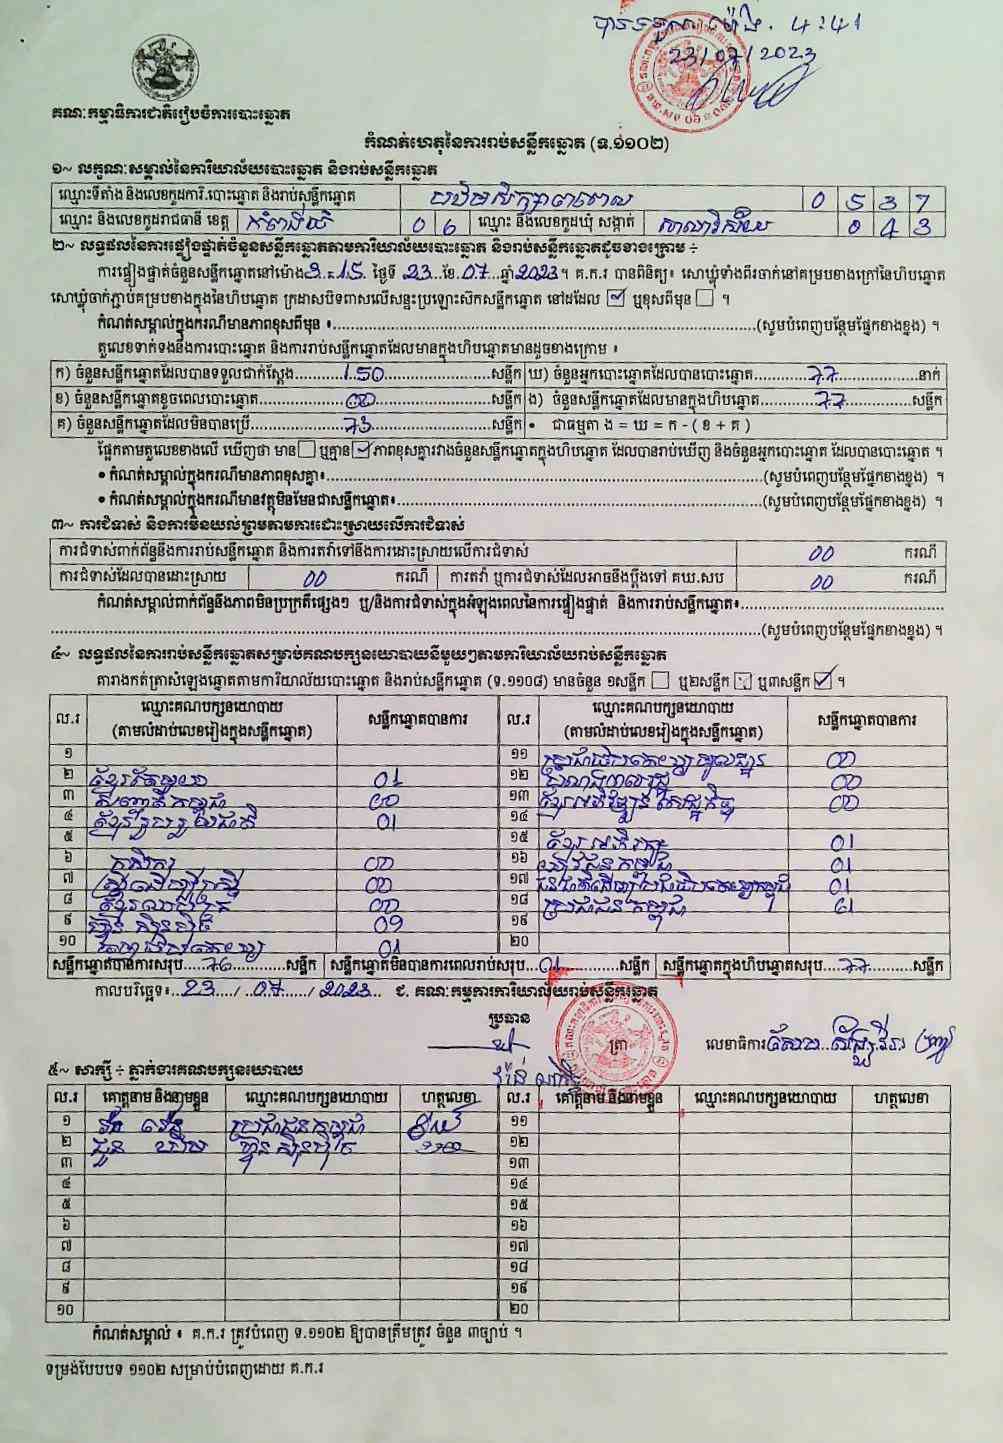 បានទទួល ម៉ោង. 4:41
23/07/2023
គណៈកម្មាធិការជាតិរៀបចំការបោះឆ្នោត
កំណត់ហេតុនៃការរាប់សន្លឹកឆ្នោត (ទ.១១០២)
១~ លក្ខណៈសម្គាល់នៃការិយាល័យបោះឆ្នោត និងរាប់សន្លឹកឆ្នោត
ឈ្មោះទីតាំង និងលេខកូដការិ.បោះឆ្នោត និងរាប់សន្លឹកឆ្នោត 0 5 3 7
ឈ្មោះ និងលេខកូដរាជធានី ខេត្ត កំពង់ធំ 0 6 ឈ្មោះ និងលេខកូដឃុំ សង្កាត់ សាលាវិស័យ 0 4 3
២~ លទ្ធផលនៃការផ្ទៀងផ្ទាត់ចំនួនសន្លឹកឆ្នោតតាមការិយាល័យបោះឆ្នោត និងរាប់សន្លឹកឆ្នោតដូចខាងក្រោម ÷
ការផ្ទៀងផ្ទាត់ចំនួនសន្លឹកឆ្នោតនៅម៉ោង 3:15 ថ្ងៃទី 23 ខែ 07 ឆ្នាំ 2023 ។ គ.ក.រ បានពិនិត្យ៖ សោឃ្លុំទាំងពីរចាក់នៅគម្របខាងក្រៅនៃហិបឆ្នោត
សោឃ្លុំចាក់ភ្ជាប់គម្របខាងក្នុងនៃហិបឆ្នោត ក្រដាសបិទពាសលើសន្ទះប្រឡោះស៊កសន្លឹកឆ្នោត នៅដដែល ☑ ឬខុសពីមុន ☐ ។
កំណត់សម្គាល់ក្នុងករណីមានភាពខុសពីមុន ៖ (សូមបំពេញបន្ថែមផ្នែកខាងខ្នង) ។
តួលេខទាក់ទងនឹងការបោះឆ្នោត និងការរាប់សន្លឹកឆ្នោតដែលមានក្នុងហិបឆ្នោតមានដូចខាងក្រោម ៖
ក) ចំនួនសន្លឹកឆ្នោតដែលបានទទួលជាក់ស្តែង 150 សន្លឹក ឃ) ចំនួនអ្នកបោះឆ្នោតដែលបានបោះឆ្នោត 77 នាក់
ខ) ចំនួនសន្លឹកឆ្នោតខូចពេលបោះឆ្នោត 00 សន្លឹក ង) ចំនួនសន្លឹកឆ្នោតដែលមានក្នុងហិបឆ្នោត 77 សន្លឹក
គ) ចំនួនសន្លឹកឆ្នោតដែលមិនបានប្រើ 73 សន្លឹក • ជាធម្មតា ង = ឃ = ក - ( ខ + គ )
ផ្អែកតាមតួលេខខាងលើ ឃើញថា មាន ☐ ឬគ្មាន ☑ ភាពខុសគ្នារវាងចំនួនសន្លឹកឆ្នោតក្នុងហិបឆ្នោត ដែលបានរាប់ឃើញ និងចំនួនអ្នកបោះឆ្នោត ដែលបានបោះឆ្នោត ។
• កំណត់សម្គាល់ក្នុងករណីមានភាពខុសគ្នា៖ (សូមបំពេញបន្ថែមផ្នែកខាងខ្នង) ។
• កំណត់សម្គាល់ក្នុងករណីមានវត្ថុមិនមែនជាសន្លឹកឆ្នោត៖ (សូមបំពេញបន្ថែមផ្នែកខាងខ្នង) ។
៣~ ការជំទាស់ និងការមិនយល់ព្រមតាមការដោះស្រាយលើការជំទាស់
ការជំទាស់ពាក់ព័ន្ធនឹងការរាប់សន្លឹកឆ្នោត និងការតវ៉ាទៅនឹងការដោះស្រាយលើការជំទាស់ 00 ករណី
ការជំទាស់ដែលបានដោះស្រាយ 00 ករណី ការតវ៉ា ឬការជំទាស់ដែលអាចនឹងប្តឹងទៅ គឃ.សប 00 ករណី
កំណត់សម្គាល់ពាក់ព័ន្ធនឹងភាពមិនប្រក្រតីផ្សេងៗ ឬ/និងការជំទាស់ក្នុងអំឡុងពេលនៃការផ្ទៀងផ្ទាត់ និងការរាប់សន្លឹកឆ្នោត៖
(សូមបំពេញបន្ថែមផ្នែកខាងខ្នង) ។
៤~ លទ្ធផលនៃការរាប់សន្លឹកឆ្នោតសម្រាប់គណបក្សនយោបាយនីមួយៗតាមការិយាល័យរាប់សន្លឹកឆ្នោត
តារាងកត់ត្រាសំឡេងឆ្នោតតាមការិយាល័យបោះឆ្នោត និងរាប់សន្លឹកឆ្នោត (ទ.១១០៨) មានចំនួន ១សន្លឹក ☐ ឬ២សន្លឹក ☐ ឬ៣សន្លឹក ☑ ។
ល.រ ឈ្មោះគណបក្សនយោបាយ (តាមលំដាប់លេខរៀងក្នុងសន្លឹកឆ្នោត) សន្លឹកឆ្នោតបានការ ល.រ ឈ្មោះគណបក្សនយោបាយ (តាមលំដាប់លេខរៀងក្នុងសន្លឹកឆ្នោត) សន្លឹកឆ្នោតបានការ
១ ១១ 00
២ 01 ១២ 00
៣ 00 ១៣ 00
៤ ខ្មែររួបរួមជាតិ 01 ១៤
៥ ១៥ ខ្មែរអភិរក្ស 01
៦ កសិករ 00 ១៦ យុវជនកម្ពុជា 01
៧ 00 ១៧ 01
៨ 00 ១៨ ប្រជាជនកម្ពុជា 61
៩ ហ៊្វុនស៊ិនប៉ិច 09 ១៩
១០ 01 ២០
សន្លឹកឆ្នោតបានការសរុប 76 សន្លឹក សន្លឹកឆ្នោតមិនបានការពេលរាប់សរុប 01 សន្លឹក សន្លឹកឆ្នោតក្នុងហិបឆ្នោតសរុប 77 សន្លឹក
កាលបរិច្ឆេទ៖ 23 / 07 / 2023 ជ. គណៈកម្មការការិយាល័យរាប់សន្លឹកឆ្នោត
ប្រធាន
ត្រា លេខាធិការ
៥~ សាក្សី ÷ ភ្នាក់ងារគណបក្សនយោបាយ
ល.រ គោត្តនាម និងនាមខ្លួន ឈ្មោះគណបក្សនយោបាយ ហត្ថលេខា ល.រ គោត្តនាម និងនាមខ្លួន ឈ្មោះគណបក្សនយោបាយ ហត្ថលេខា
១ ប្រជាជនកម្ពុជា ១១
២ ហ៊្វុនស៊ិនប៉ិច ១២
៣ ១៣
៤ ១៤
៥ ១៥
៦ ១៦
៧ ១៧
៨ ១៨
៩ ១៩
១០ ២០
កំណត់សម្គាល់ ៖ គ.ក.រ ត្រូវបំពេញ ទ.១១០២ ឱ្យបានត្រឹមត្រូវ ចំនួន ៣ច្បាប់ ។
ទម្រង់បែបបទ ១១០២ សម្រាប់បំពេញដោយ គ.ក.រ